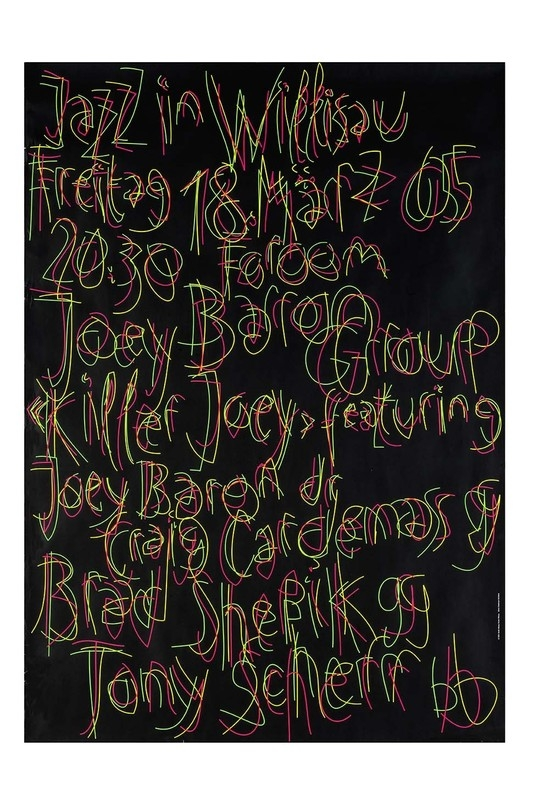 Jazz in Willisau
Freitag 18. März 05
20.30 Foroom
Joey Baron Group
«Killer Joey» featuring
Joey Baron dr
Craig Cardemass g
Brad Shepik g
Tony Scherr b